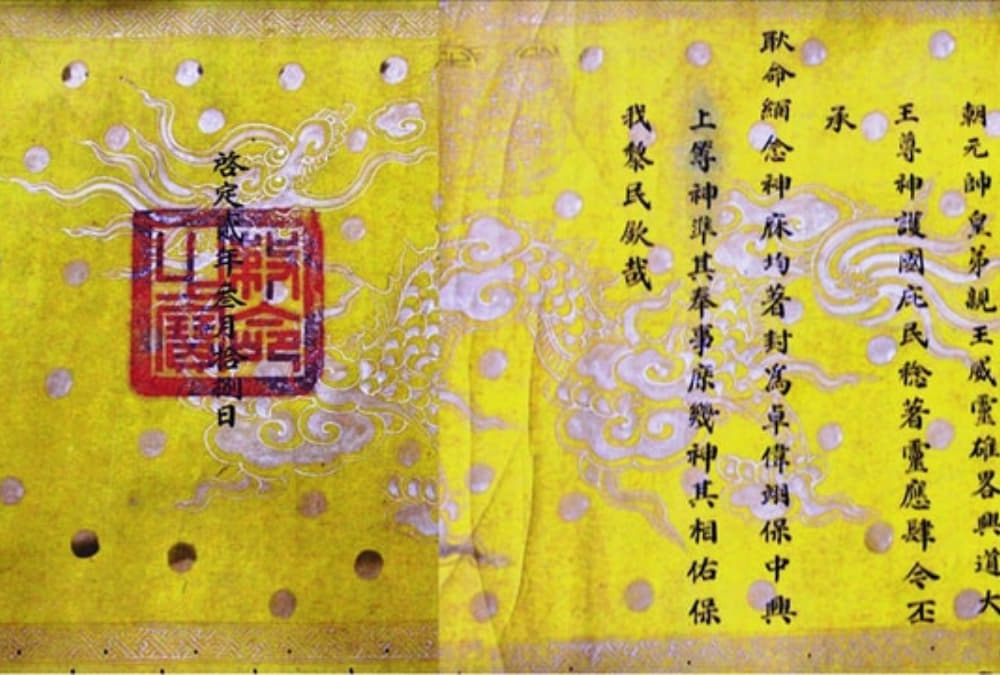 朝元帥皇弟親王威靈雄畧興道大
王尊神護國庇民稔著靈應肆令丕
承
耿命緬念神庥均著封為卓偉翊保中興
上等神準其奉事庶幾神其相佑保
我黎民欽哉
啓定貳年叁月拾捌日
敕命之寶